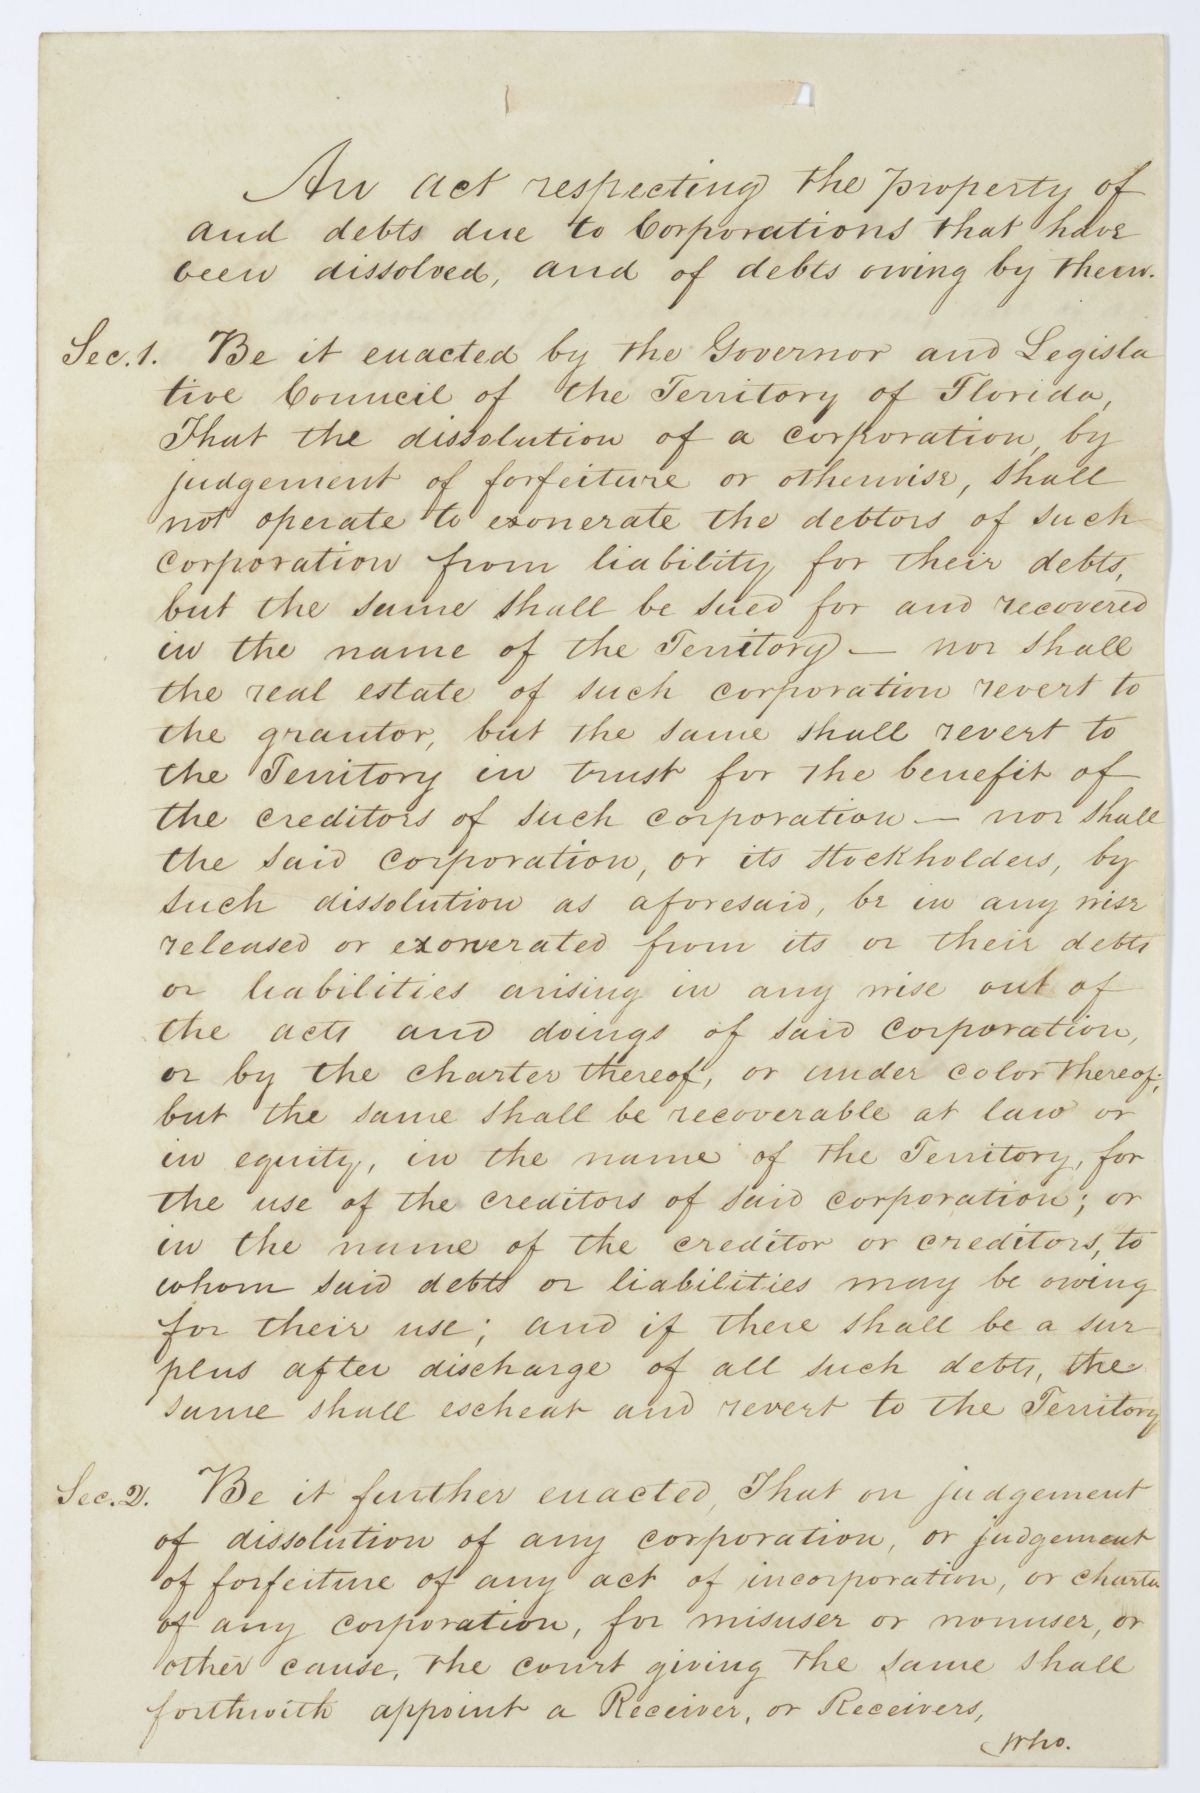 An act respecting the property of
and debts due to Corporations that have
been dissolved, and of debts owing by them.
Sec. 1. Be it enacted by the Governor and Legisla
tive Council of the Territory of Florida,
That the dissolution of a corporation, by
judgement of forfeiture or otherwise, shall
not operate to exonerate the debtors of such
corporation from liability for their debts,
but the same shall be sued for and recovered
in the name of the Territory — nor shall
the real estate of such corporation revert to
the grantor, but the same shall revert to
the Territory in trust for the benefit of
the creditors of such corporation — nor shall
the said corporation, or its stockholders, by
such dissolution as aforesaid, be in any wise
released or exonerated from its or their debts
or liabilities arising in any wise out of
the acts and doings of said corporation,
or by the charter thereof, or under color thereof;
but the same shall be recoverable at law or
in equity, in the name of the Territory, for
the use of the creditors of said corporation; or
in the name of the creditor or creditors, to
whom said debts or liabilities may be owing
for their use; and if there shall be a sur
plus after discharge of all such debts, the
same shall escheat and revert to the Territory
Sec. 2. Be it further enacted, That on judgement
of dissolution of any corporation, or judgement
of forfeiture of any act of incorporation, or charter
of any corporation, for misuser or nonuser, or
other cause, the court giving the same shall
forthwith appoint a Receiver, or Receivers,
who.